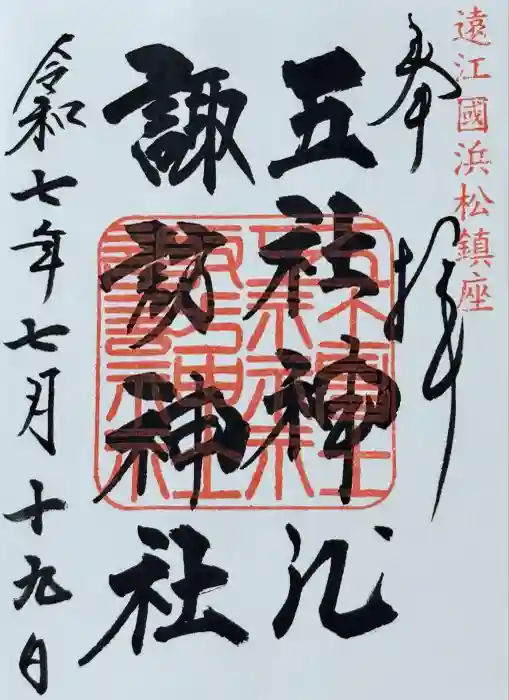 遠江國浜松鎮座
奉拝
五社神社
諏訪神社
令和七年七月十九日